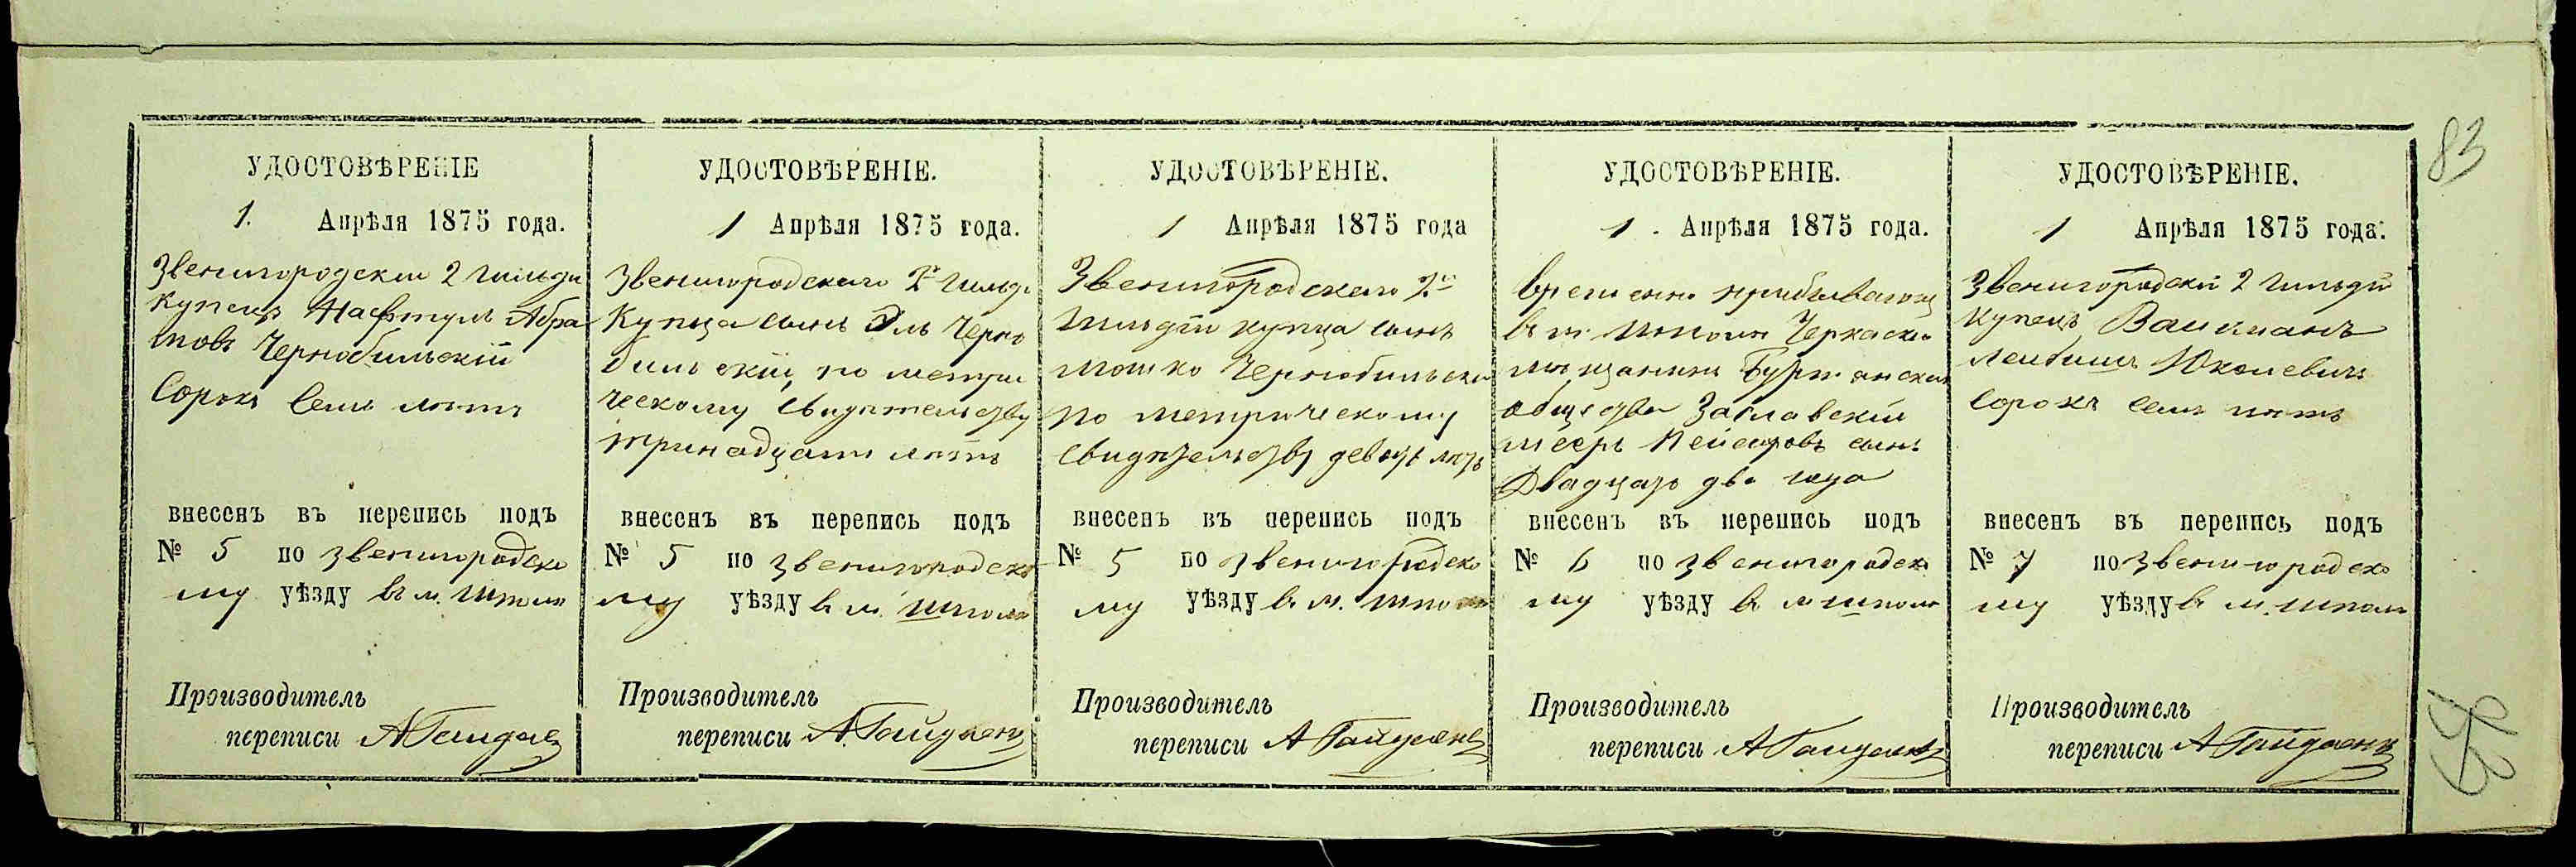 83
УДОСТОВѢРЕНІЕ
1. Апрѣля 1875 года.
Звенигородскій 2 гильди
купецъ Нафтулъ Абра
мовъ Чернобильскій
Сорокъ семь лѣтъ
внесенъ въ перепись подъ
№ 5 по звенигородско
му уѣзду въ м. Шполѣ
Производитель
переписи
УДОСТОВѢРЕНІЕ.
1 Апрѣля 1875 года.
Звенигородскаго 2й гильді
Купца сынъ Эль Черно
бильскій, по метри
ческому свидѣтельству
тринадцать лѣтъ
внесенъ въ перепись подъ
№ 5 по звенигородско
му уѣзду в м. Шполѣ
Производитель
переписи А. Гайдаенк
УДОСТОВѢРЕНІЕ.
1 Апрѣля 1875 года
Звенигородскаго 2й
гильдіи купца сынъ
Мошко Чернобильскій
по метрическому
свидѣтельству девять лѣтъ
внесенъ въ перепись подъ
№ 5 по звенигородско
му уѣзду в. м. Шполѣ
Производитель
переписи А Гайдаенк
УДОСТОВѢРЕНІЕ.
1 Апрѣля 1875 года.
временно пребывающ
в м. Шполѣ Черкаскій
мѣщанинъ
общества Заславскій
Мееръ сынъ
Двадцать два года
внесенъ въ перепись подъ
№ 6 по звенигородско
му уѣзду в м Шполѣ
Производитель
переписи А Гайдаенк
УДОСТОВѢРЕНІЕ.
1 Апрѣля 1875 года.
Звенигородскій 2 гильдіи
купецъ Вайнманъ
Лейбишъ
Сорокъ семь лѣтъ
внесенъ въ перепись подъ
№ 7 по звенигородско
му уѣзду в м. Шполѣ
Производитель
переписи А Гайдаенк